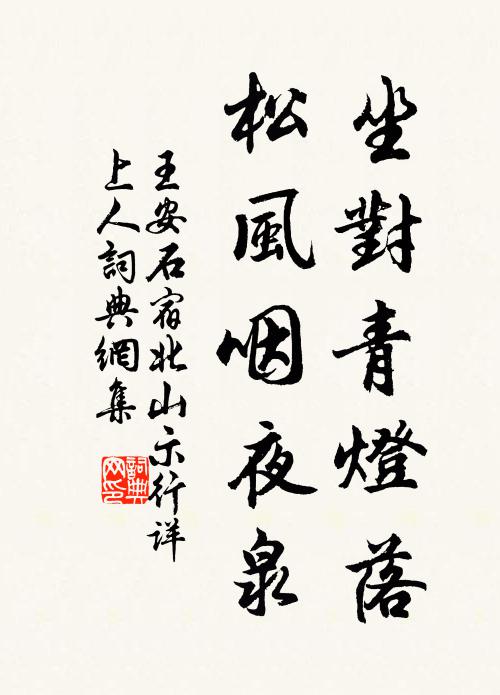 坐對青燈落
松風咽夜泉
王安石宿北山示行詳
上人詞典網集
詞典
网印